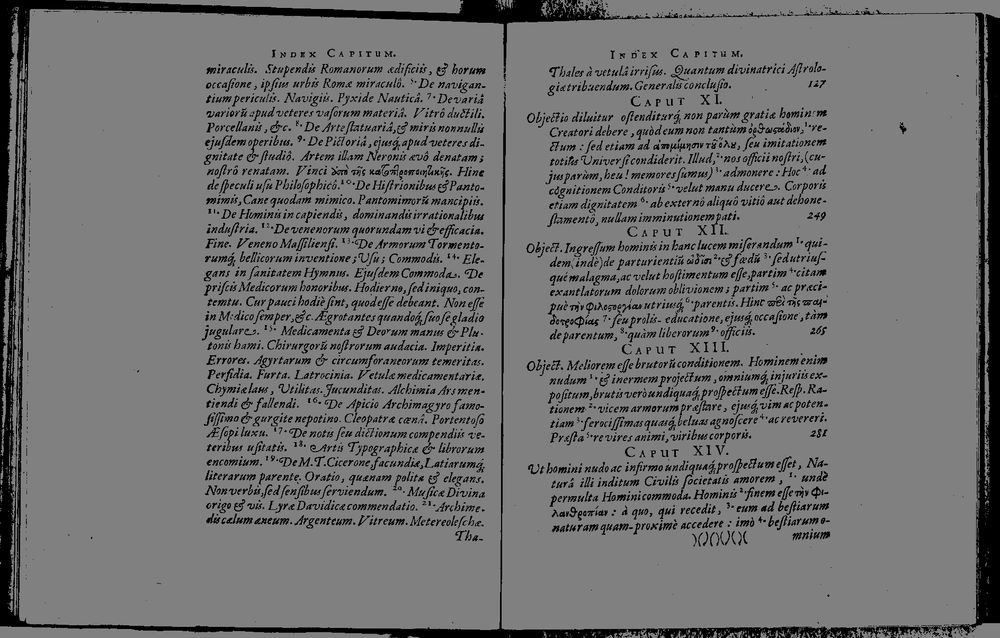 INDEX CAPITUM.
miraculis. Stupendis Romanorum ædificiis, & horum
occasione, ipsius urbis Romæ miraculô. 5. De navigan-
tium periculis. Navigiis. Pyxide Nauticâ. 7. De variâ
variorũ apud veteres vasorum materiâ. Vitrô ductili.
Porcellanis, &c. 8. De Arte statuariâ, & miris nonnullis
ejusdem operibus. 9. De Pictoriâ, ejusq; apud veteres di-
gnitate & studiô. Artem illam Neronis ævô denatam;
nostrô renatam. Vinci ὑπὸ τῆς κατοπτροποιητικῆς. Hinc
de speculi usu Philosophicô. 10. De Histrionibus & Panto-
mimis, Cane quodam mimico. Pantomimorũ mancipiis.
11. De Hominis in capiendis, dominandis irrationalibus
industria. 12. De venenorum quorundam vi & efficacia.
Fine. Veneno Massiliensi. 13. De Armorum Tormento-
rumq; bellicorum inventione; Usu; Commodis. 14. Ele-
gans in sanitatem Hymnus. Ejusdem Commoda. De
priscis Medicorum honoribus. Hodierno, sed iniquo, con-
temtu. Cur pauci hodiè sint, quod esse debeant. Non esse
in Medico semper, &c. Ægrotantes quandoq; suo se gladio
jugulare. 15. Medicamenta & Deorum manus & Plu-
tonis hami. Chirurgorũ nostrorum audacia. Imperitia.
Errores. Agyrtarum & circumforaneorum temeritas.
Perfidia. Furta. Latrocinia. Vetulæ medicamentariæ.
Chymiæ laus, Utilitas. Jucunditas. Alchimia Ars men-
tiendi & fallendi. 16. De Apicio Archimagyro famo-
sissimo & gurgite nepotino. Cleopatræ cœnâ. Portentoso
Æsopi luxu. 17. De notis seu dictionum compendiis ve-
teribus usitatis. 18. Artis Typographicæ & librorum
encomium. 19. De M. T. Cicerone, facundiæ, Latiarumq;
literarum parente. Oratio, quænam polita & elegans.
Non verbis, sed sensibus serviendum. 20. Musicæ Divina
origo & vis. Lyræ Davidicæ commendatio. 21. Archime-
dis cælum æneum. Argenteum. Vitreum. Metereoleschæ.
Tha-
INDEX CAPITUM.
Thales à vetulâ irrisus. Quantum divinatrici Astrolo-
giæ tribuendum. Generalis conclusio. 127
CAPUT XI.
Objectio diluitur ostenditurq; non parùm gratiæ hominem
Creatori debere, quòd eum non tantùm ὀρθωπόδιον, 1. re-
ctum: sed etiam ad ἀπομίμησιν τοῦ ὅλου, seu imitationem
totius Universi condiderit. Illud, 2. nos officii nostri, (cu-
jus parùm, heu! memores sumus) 3. admonere: Hoc 4. ad
cognitionem Conditoris 5. velut manu ducere. Corporis
etiam dignitatem 6. ab externô aliquô vitiô aut dehone-
stamentô, nullam imminutionem pati. 249
CAPUT XII.
Object. Ingressum hominis in hanc lucem miserandum 1. qui-
dem, indè) de parturientiũ ὠδῖσι 2. & fœdũ 3. sed utrius-
què malagma, ac velut hostimentum esse, partim 4. citam
exantlatorum dolorum oblivionem; partim 5. ac præci-
puè τὴν φιλοστοργίαν utriusq; 6. parentis. Hinc περὶ τῆς παι-
δοτροφίας 7. seu prolis educatione, ejusq; occasione, tàm
de parentum, 8. quàm liberorum 9. officiis. 265
CAPUT XIII.
Object. Meliorem esse brutorũ conditionem. Hominem enim
nudum 1. & inermem projectum, omniumq; injuriis ex-
positum, brutis verò undiquaq; prospectum esse. Resp. Ra-
tionem 2. vicem armorum præstare, ejusq; vim ac poten-
tiam 3. ferocissimas quasq; beluas agnoscere 4. ac revereri.
Præsta 5. re vires animi, viribus corporis. 281
CAPUT XIV.
Ut homini nudo ac infirmo undiquaq; prospectum esset, Na-
turâ illi inditum Civilis societatis amorem, 1. undè
permulta Homini commoda. Hominis 2. finem esse τὴν φι-
λανθρωπίαν: à quo, qui recedit, 3. eum ad bestiarum
naturam quam-proximè accedere: imò 4. bestiarum o-
)()()()()( mnium